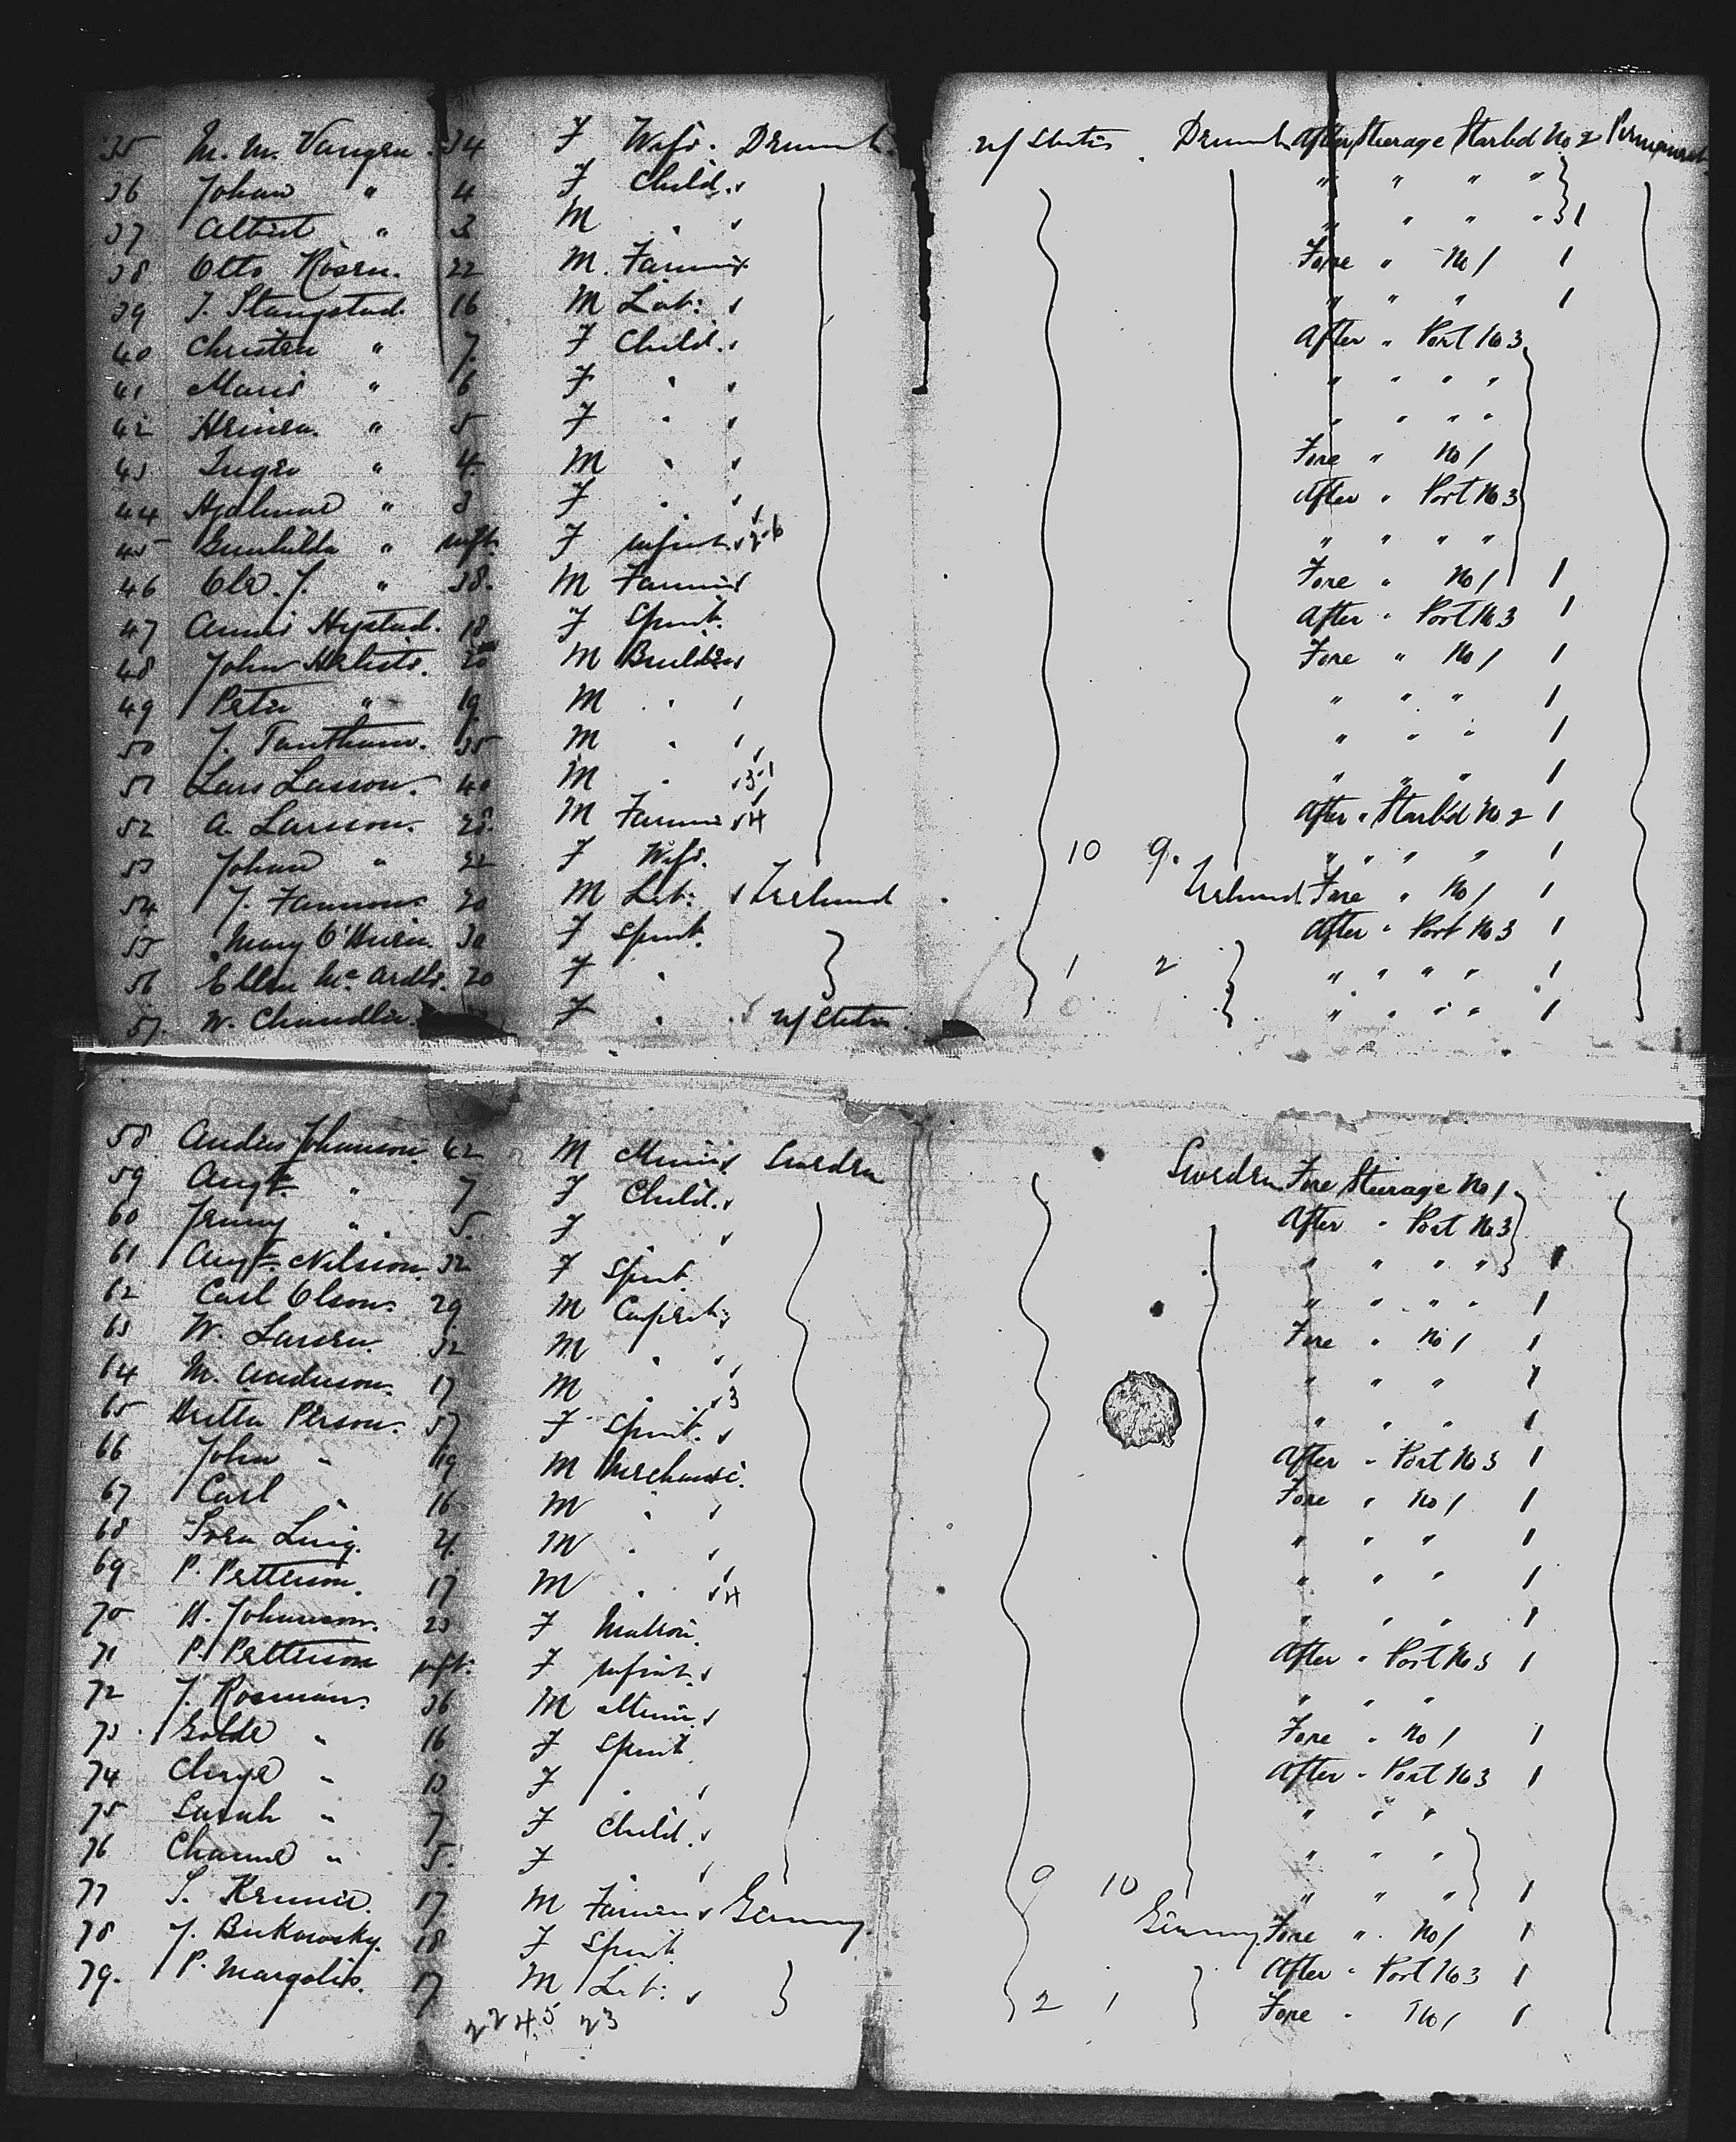 35 M. M. Vangen 34 F Wife. Denmark. U/ States Denmark After Steerage Starbd No 2 Permanent
36 Johan " 4 F Child. " " " "
37 Albert " 3 M " " " " 1
38 Otto Rosen. 22 M. Farmer Fore " No 1 1
39 J. Stangstad. 16 M Lab: " " " 1
40 Christen " 7 F Child. After " Port No 3
41 Marie " 6 F " " " "
42 " 5 F " " " "
43 " 4 M Fore " No 1
44 Hjalmar " 3 F After " Port No 3
45 Gunhilda " inft. F Infant 2-6 " " " "
46 Ole. J. " 38. M Farmer Fore " No 1 1
47 Annie Hystad. 18 F Spinst. After " Port No 3 1
48 John 20 M Builder Fore " No 1 1
49 Peter " 19 M " " " 1
50 J. 35 M " " " 1
51 Lars Lasson. 40 M 3-1 " " " 1
52 A. Larsson. 28. M Farmer 4 After " Starbd No 2 1
53 Johan " 22 F Wife. 10 9. " " " " 1
54 J. Fannon 20 M Lab: Ireland Ireland Fore " No 1 1
55 Mary O'Brien. 30 F Spinst. After " Port No 3 1
56 Ellen Mc Ardle. 20 F 1 2 " " " " 1
57. W. Chandler. F U/ States. " " " " 1
58. Andes Johnson. 42 M Miner Sweden Sweden Fore Steerage No 1
59 Augt. " 7 F Child. After " Port No 3
60 Jenny " 5. F " " " " 1
61 Augt. Nilsson. 32 F Spinst. " " " " 1
62 Carl Olson. 29 M Carpent: Fore " No 1 1
63 W. Larsen. 32 M " " " 1
64 M. Anderson. 17 M 3 " " " 1
65 Person. 57 F Spinst. After " Port No 3 1
66 John " 19 M Mechanic. Fore " No 1 1
67 Carl " 16 M " " " 1
68 Sven M " " " 1
69 P. Petterson. 17 M 4 " " " 1
70 H. Johnsson. 23 F Matron. After " Port No 3 1
71 P. Petterson inft. F Infant " " "
72 J. Rosman. 36 M Miner Fore " No 1 1
73 Golde " 16 F Spinst. After " Port No 3 1
74 " 13 F " " "
75 Sarah " 7 F Child. " " "
76 " 5. F 9 10 " " " 1
77 S. 17 M Farmer Germany Germany. Fore " No 1 1
78 J. Bukowsky. 18 F Spinst. After " Port No 3 1
79. P. Margolis. 17 M Lab: 2 1 Fore " No 1 1